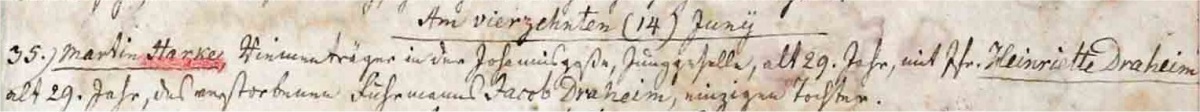 Am vierzehnten (14) Junÿ
35.) Martin Starke, Riementräger in der Johannisgasse, Junggeselle, alt 29. Jahr, mit Jfr. Heinriette Draheim
alt 29. Jahr, des verstorbenen Fuhrmanns Jacob Draheim, einzigen Tochter.